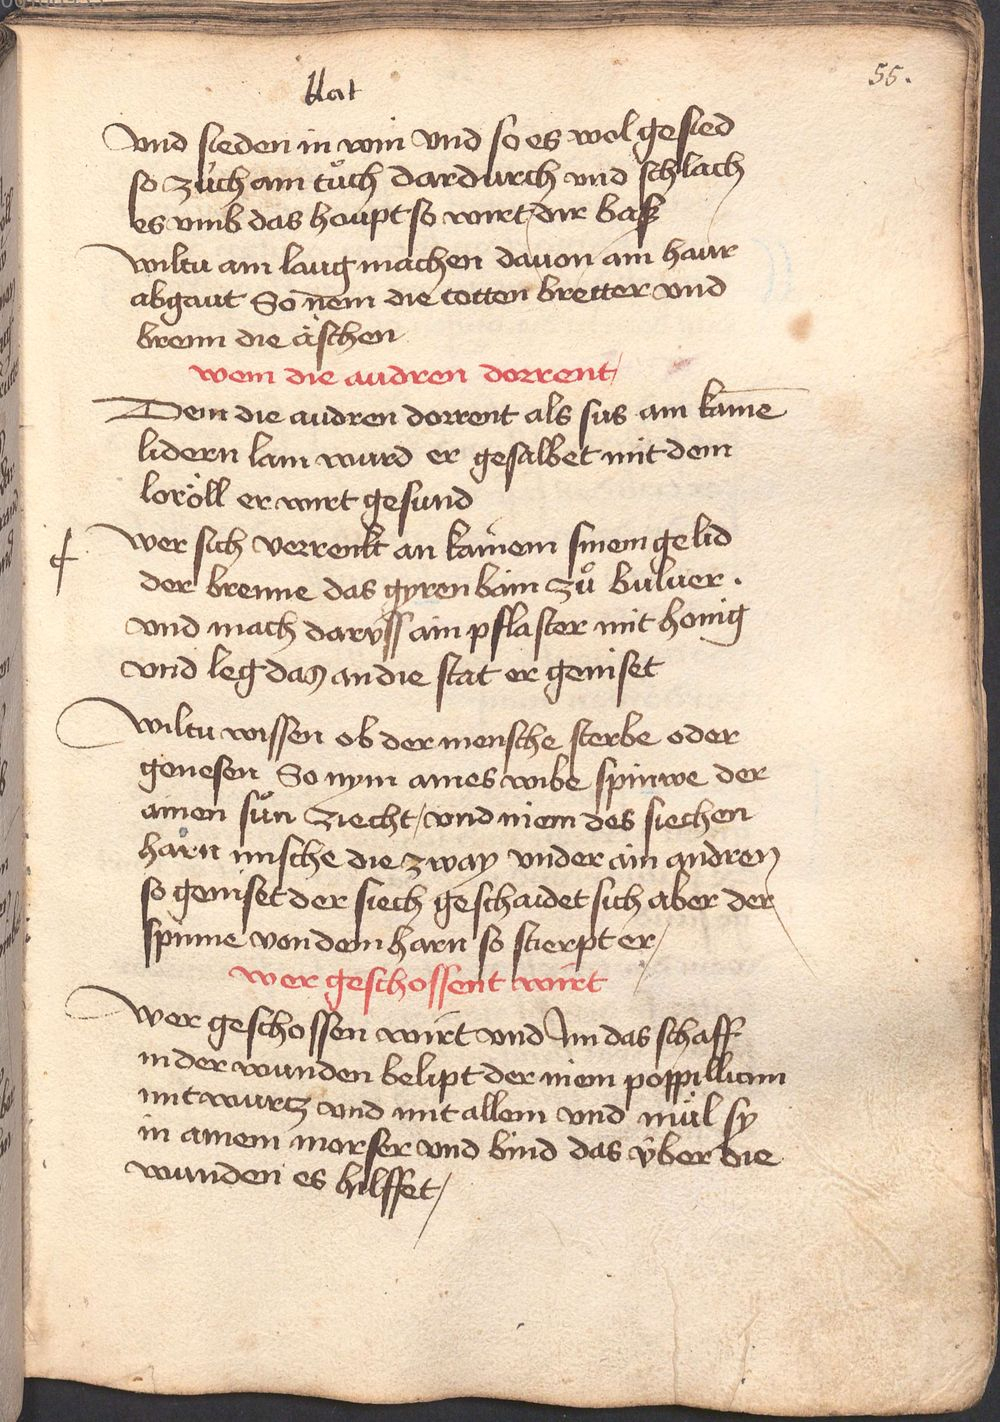 blat
55.
vnd sieden in win vnd so es wol gesied
so züch am tůch dardurch vnd schlach
es vmb das houpt so wirt dir bas
wiltu am laug machen dauon am haur
abgaut So nem die totten bretter vnd
brenn die äschen
wem die audren dorrent
Dem die audren dorrent als sus am kaine
lidern lam wurd er gesalbet mit dem
loröll er wirt gesund
wer sich verrenkt an kainem sinem gelid
der brenne das gyren bain zů buluer .
vnd mach daryss ain pflaster mit honig
vnd leg das an die stat er geniset
wiltu wissen ob der mensche sterbe oder
genesen So nym aines wibe spinwe der
ainen sůn ziecht / vnd niem des siechen
harn mische die zway vnder ain andren
so geniset der siech geschaidet sich aber der
spinne von dem harn so stierpt er /
wer geschossent wirt
wer geschossen wirt vnd Im das schaff
in der wunden belipt der niem poppillium
mit wurtz vnd mit allem vnd mül sy
in ainem morser vnd bind das über die
wunden es hilffet /